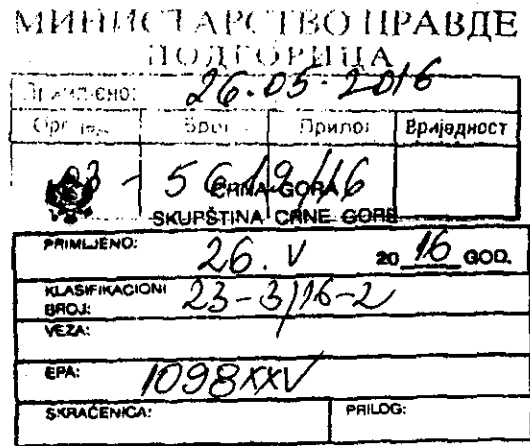 МИНИСТАРСТВО ПРАВДЕ
ПОДГОРИЦА
Примљено: 26.05-2016
Орг. јед. Број Прилог Вриједност
03 - 56/9/16
CRNA GORA
SKUPŠTINA CRNE GORE
PRIMLJENO: 26. V 20 16 GOD.
KLASIFIKACIONI
BROJ: 23-3/16-2
VEZA:
EPA: 1098 XXV
SKRAĆENICA: PRILOG: